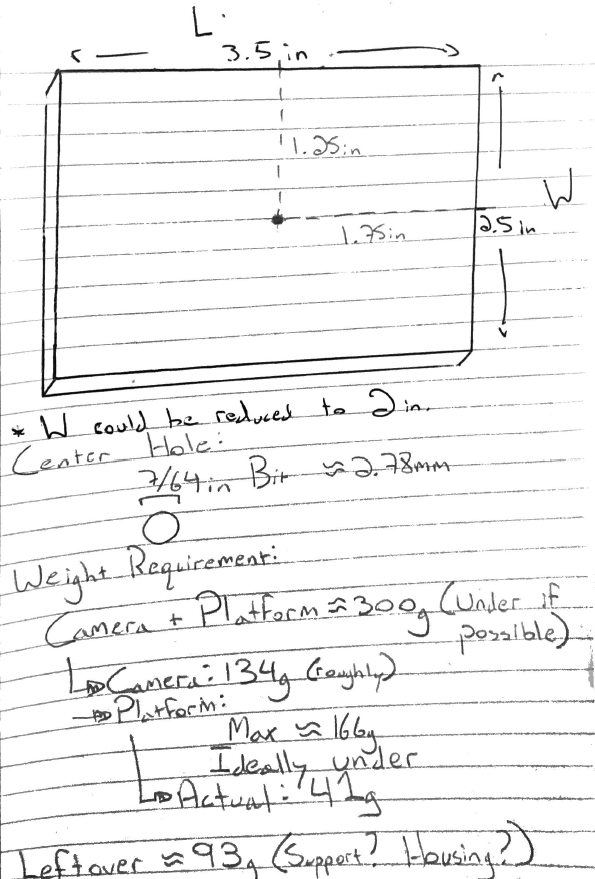 L.
3.5 in
1.25in
W
1.75in
2.5in
* W could be reduced to 2 in.
Center Hole:
7/64in Bit ≈ 2.78mm
Weight Requirement:
Camera + Platform ≈ 300g (Under if
possible)
↳ Camera: 134g (roughly)
→ Platform:
Max ≈ 166g
Ideally under
↳ Actual: 41g
Leftover ≈ 93g (Support? Housing?)